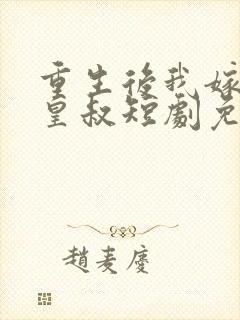 重生後我嫁
皇叔短劇免
趙麦慶